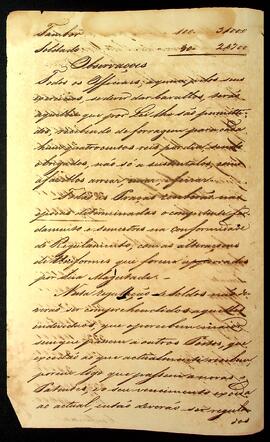 Tambor 100. 3$000
Soldado 90. 2$700
Observações
Todos os Officiaes, a quem pelos seus
exercicios, se devem dar cavallos, serão
aquelles que por Lei lhe são permitti-
dos, recebendo de forragem para cada
hum quatro centos reis por dia, sendo
obrigados, não só a sustentalos, como
a fazellos arrear, e ferrar.
Todas as Praças receberão nas
epocas determinadas o competente far-
damento e semestres na conformidade
do Regulamento, com as alterações
de Uniformes que forem approvados
por Sua Magestade.
Nesta regulação de Soldos não de-
verão ser comprehendidos aquelles
individuos, que a perceberem
sem que passem a outros Postos, que
excedão ao que actualmente recebem,
porem logo que passem a novas
Patentes, e o seu vencimento exceda
ao actual, então deverão ser regula
dos